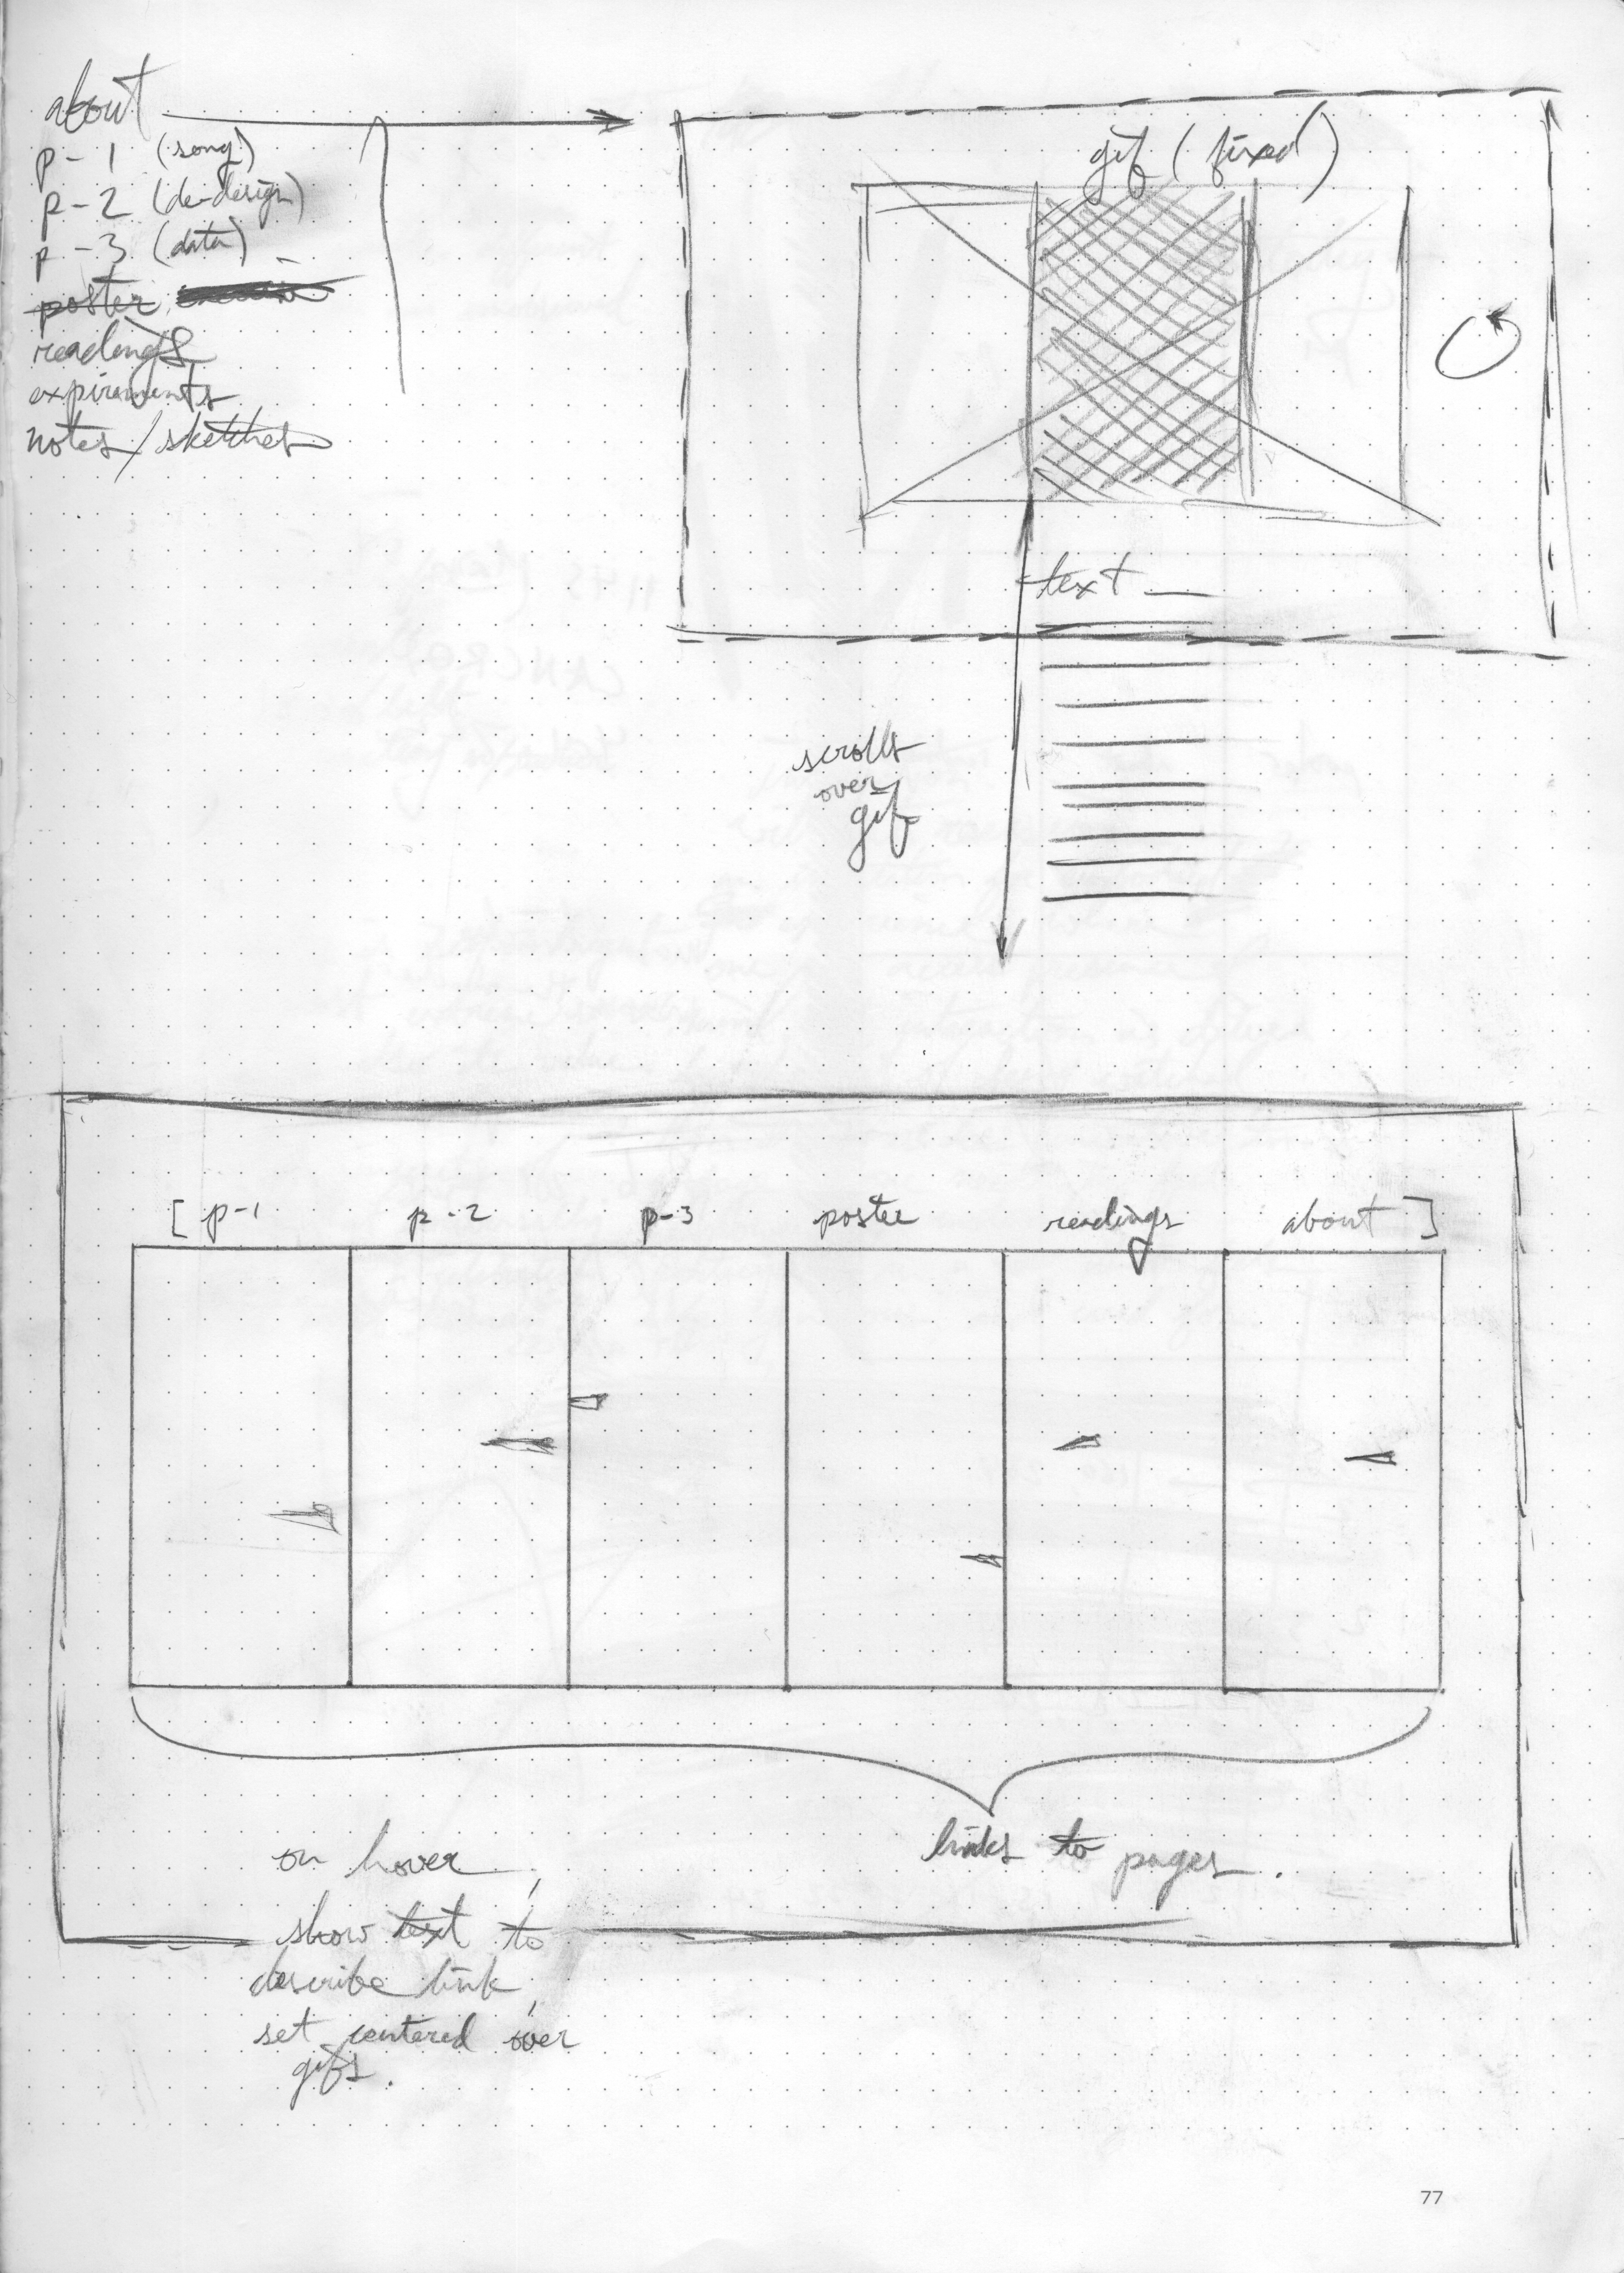 about
p-1 (song)
p-2 (de-design)
p-3 (data)
poster
readings
expiraments
notes/sketches
gif (fixed)
text
scrolls
over
gif
[ p-1 p-2 p-3 poster readings about ]
links to pages.
on hover,
show text to
describe link,
set centered over
gifs.
77